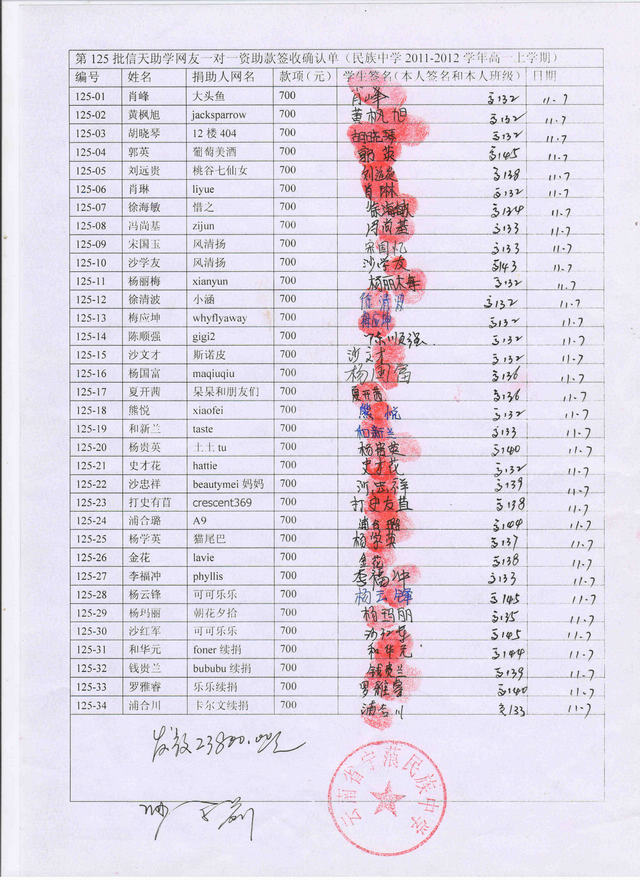 第 125 批信天助学网友一对一资助款签收确认单（民族中学 2011-2012 学年高一上学期）
编号 姓名 捐助人网名 款项（元） 学生签名（本人签名和本人班级） 日期
125-01 肖峰 大头鱼 700 肖峰 高132 11.7
125-02 黄枫旭 jacksparrow 700 黄枫旭 高132 11.7
125-03 胡晓琴 12 楼 404 700 胡晓琴 高132 11.7
125-04 郭英 葡萄美酒 700 郭英 高145 11.7
125-05 刘远贵 桃谷七仙女 700 刘远贵 高138 11.7
125-06 肖琳 liyue 700 肖琳 高132 11.7
125-07 徐海敏 惜之 700 徐海敏 高134 11.7
125-08 冯尚基 zijun 700 冯尚基 高133 11.7
125-09 宋国玉 风清扬 700 高133 11.7
125-10 沙学友 风清扬 700 沙学友 高143 11.7
125-11 杨丽梅 xianyun 700 杨丽梅 高132 11.7
125-12 徐清波 小涵 700 徐清波 高132 11.7
125-13 梅应坤 whyflyaway 700 梅应坤 高132 11.7
125-14 陈顺强 gigi2 700 陈顺强 高132 11.7
125-15 沙文才 斯诺皮 700 沙文才 高132 11.7
125-16 杨国富 maqiuqiu 700 杨国富 高136 11.7
125-17 夏开茜 呆呆和朋友们 700 夏开茜 高136 11.7
125-18 熊悦 xiaofei 700 熊悦 高132 11.7
125-19 和新兰 taste 700 和新兰 高133 11.7
125-20 杨贵英 土土 tu 700 杨贵英 高140 11.7
125-21 史才花 hattie 700 史才花 高132 11.7
125-22 沙忠祥 beautymei 妈妈 700 沙忠祥 高139 11.7
125-23 打史有首 crescent369 700 高138 11.7
125-24 浦合璐 A9 700 浦合璐 高144 11.7
125-25 杨学英 猫尾巴 700 杨学英 高137 11.7
125-26 金花 lavie 700 金花 高138 11.7
125-27 李福冲 phyllis 700 李福冲 高133 11.7
125-28 杨云锋 可可乐乐 700 杨云锋 高145 11.7
125-29 杨玛丽 朝花夕拾 700 杨玛丽 高135 11.7
125-30 沙红军 可可乐乐 700 沙红军 高145 11.7
125-31 和华元 foner 续捐 700 和华元 高144 11.7
125-32 钱贵兰 bububu 续捐 700 钱贵兰 高139 11.7
125-33 罗雅睿 乐乐续捐 700 罗雅睿 高140 11.7
125-34 浦合川 卡尔文续捐 700 浦合川 高133 11.7
发放23800.00元
云南省宁蒗民族中学